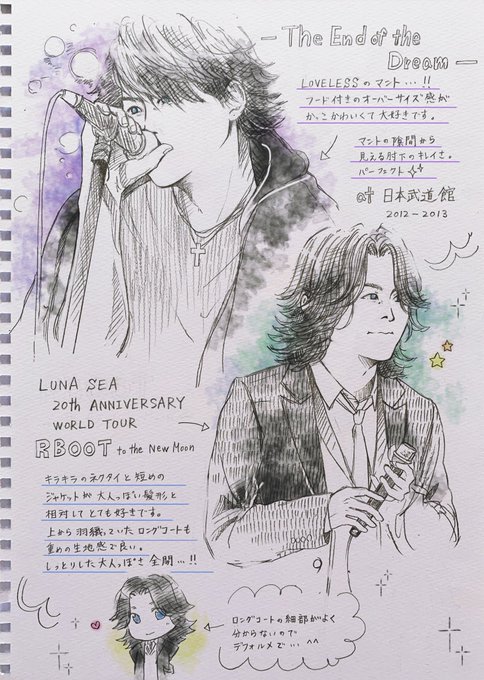 - The End of the
Dream -
LOVELESSのマント…!!
フード付きのオーバーサイズ感が
かっこかわいくて大好きです。
マントの隙間から
見える肘下のキレイさ。
パーフェクト
at 日本武道館
2012-2013
LUNA SEA
20th ANNIVERSARY
WORLD TOUR
RBOOT to the New Moon
キラキラのネクタイと短めの
ジャケットが大人っぽい髪形と
相対してとても好きです。
上から羽織っていたロングコートも
重めの生地感で良い。
しっとりした大人っぽさ全開…!!
ロングコートの細部がよく
分からないので
デフォルメで… ^^